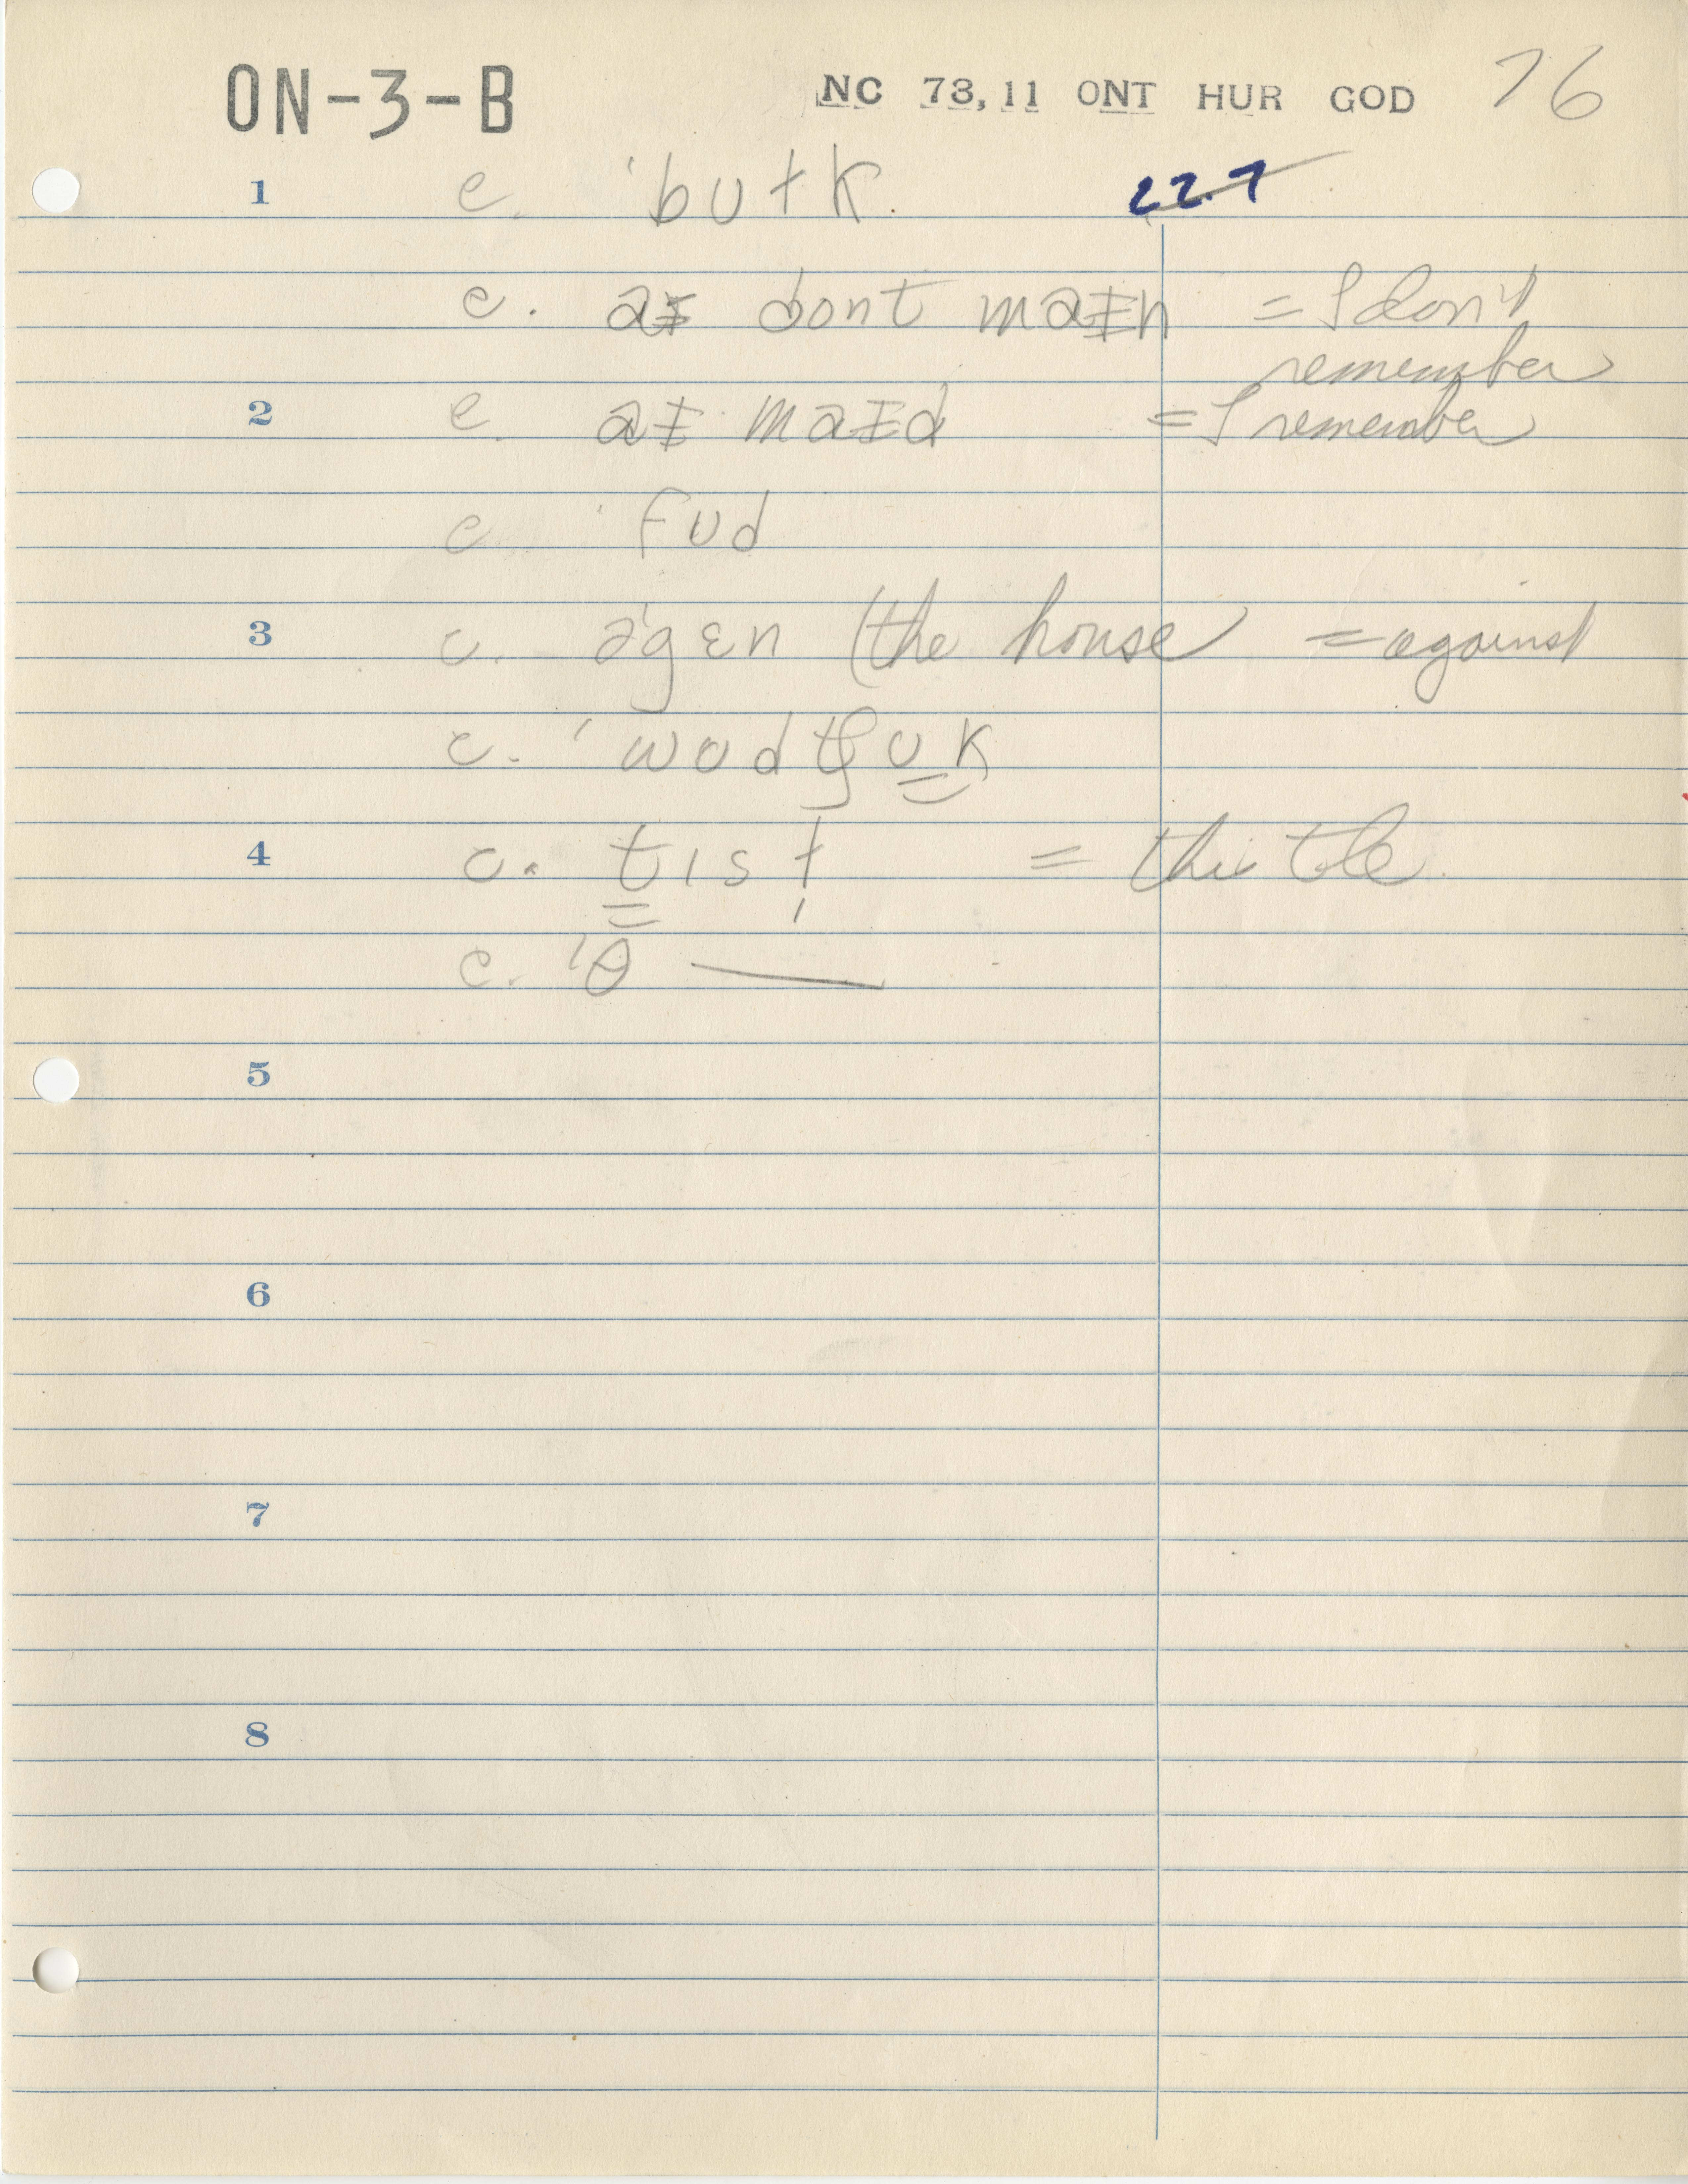 ON-3-B NC 73,11 ONT HUR GOD 76
1 c. 'bʊɫk. 22.7
c. aɪ dont maɪn = I don't
remember
2 c. aɪ maɪd = I remember
c. 'fʊd
3 c. əgɛn (the house = against
c. 'wʊdtʃʊk
4 c. tɪsɫ̩ = thistle.
c. 'θ —
5
6
7
8